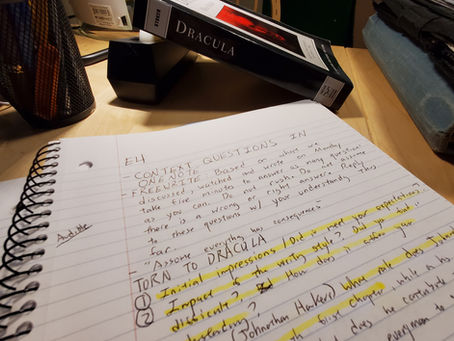 DRACULA
E4
- CONTEXT QUESTIONS IN
ONE NOTE
- FREEWRITE Based on what we
discussed, watched and wrote on identity
take five minutes and answer as many questions
as you can. Do not rush. Do not ask
there is a wrong or right answer. Reply
to these questions w/ your understanding thus
far.
"Assume everything has consequences"
TORN TO DRACULA
① Initial impressions / Did it meet your expectations?
② Impact of the writing style? Did you find
difficult? How does it affect your
(Johnathan Harker) What role does
first chapter, while
does he contribute
everyman to